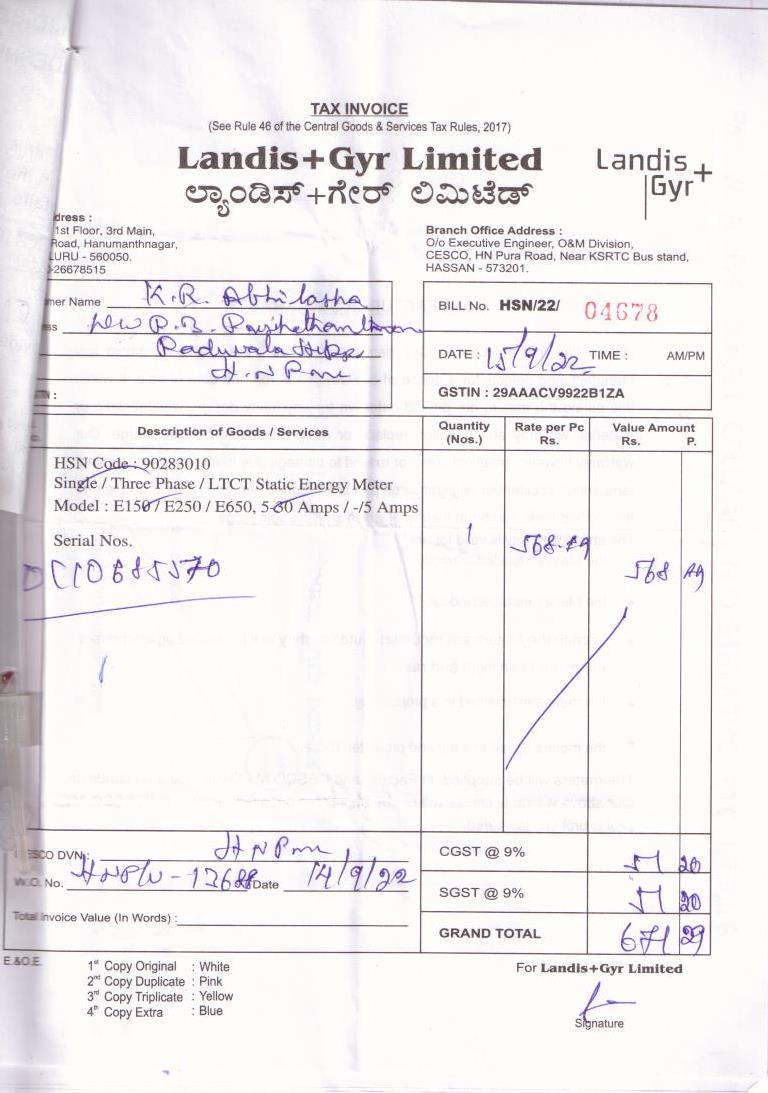 TAX INVOICE
(See Rule 46 of the Central Goods & Services Tax Rules, 2017)
Landis+Gyr Limited
Landis+
Gyr
ಲ್ಯಾಂಡಿಸ್+ಗೇರ್ ಲಿಮಿಟೆಡ್
dress :
1st Floor, 3rd Main,
Road, Hanumanthnagar,
URU - 560050.
-26678515
Branch Office Address :
O/o Executive Engineer, O&M Division,
CESCO, HN Pura Road, Near KSRTC Bus stand,
HASSAN - 573201.
mer Name K.R. Abhilasha
ss
H.N Pura
BILL No. HSN/22/ 04678
DATE : 15/9/22 TIME : AM/PM
GSTIN : 29AAACV9922B1ZA
Description of Goods / Services
Quantity (Nos.)
Rate per Pc Rs.
Value Amount Rs. P.
HSN Code : 90283010
Single / Three Phase / LTCT Static Energy Meter
Model : E150 / E250 / E650, 5-30 Amps / -/5 Amps
Serial Nos.
1 568.49 568 49
ESCO DVN : H N Pura
W.O. No. Date 14/9/22
Total Invoice Value (In Words) :
CGST @ 9% 51 20
SGST @ 9% 51 20
GRAND TOTAL 671 29
E.&O.E.
1st Copy Original : White
2nd Copy Duplicate : Pink
3rd Copy Triplicate : Yellow
4th Copy Extra : Blue
For Landis+Gyr Limited
Signature